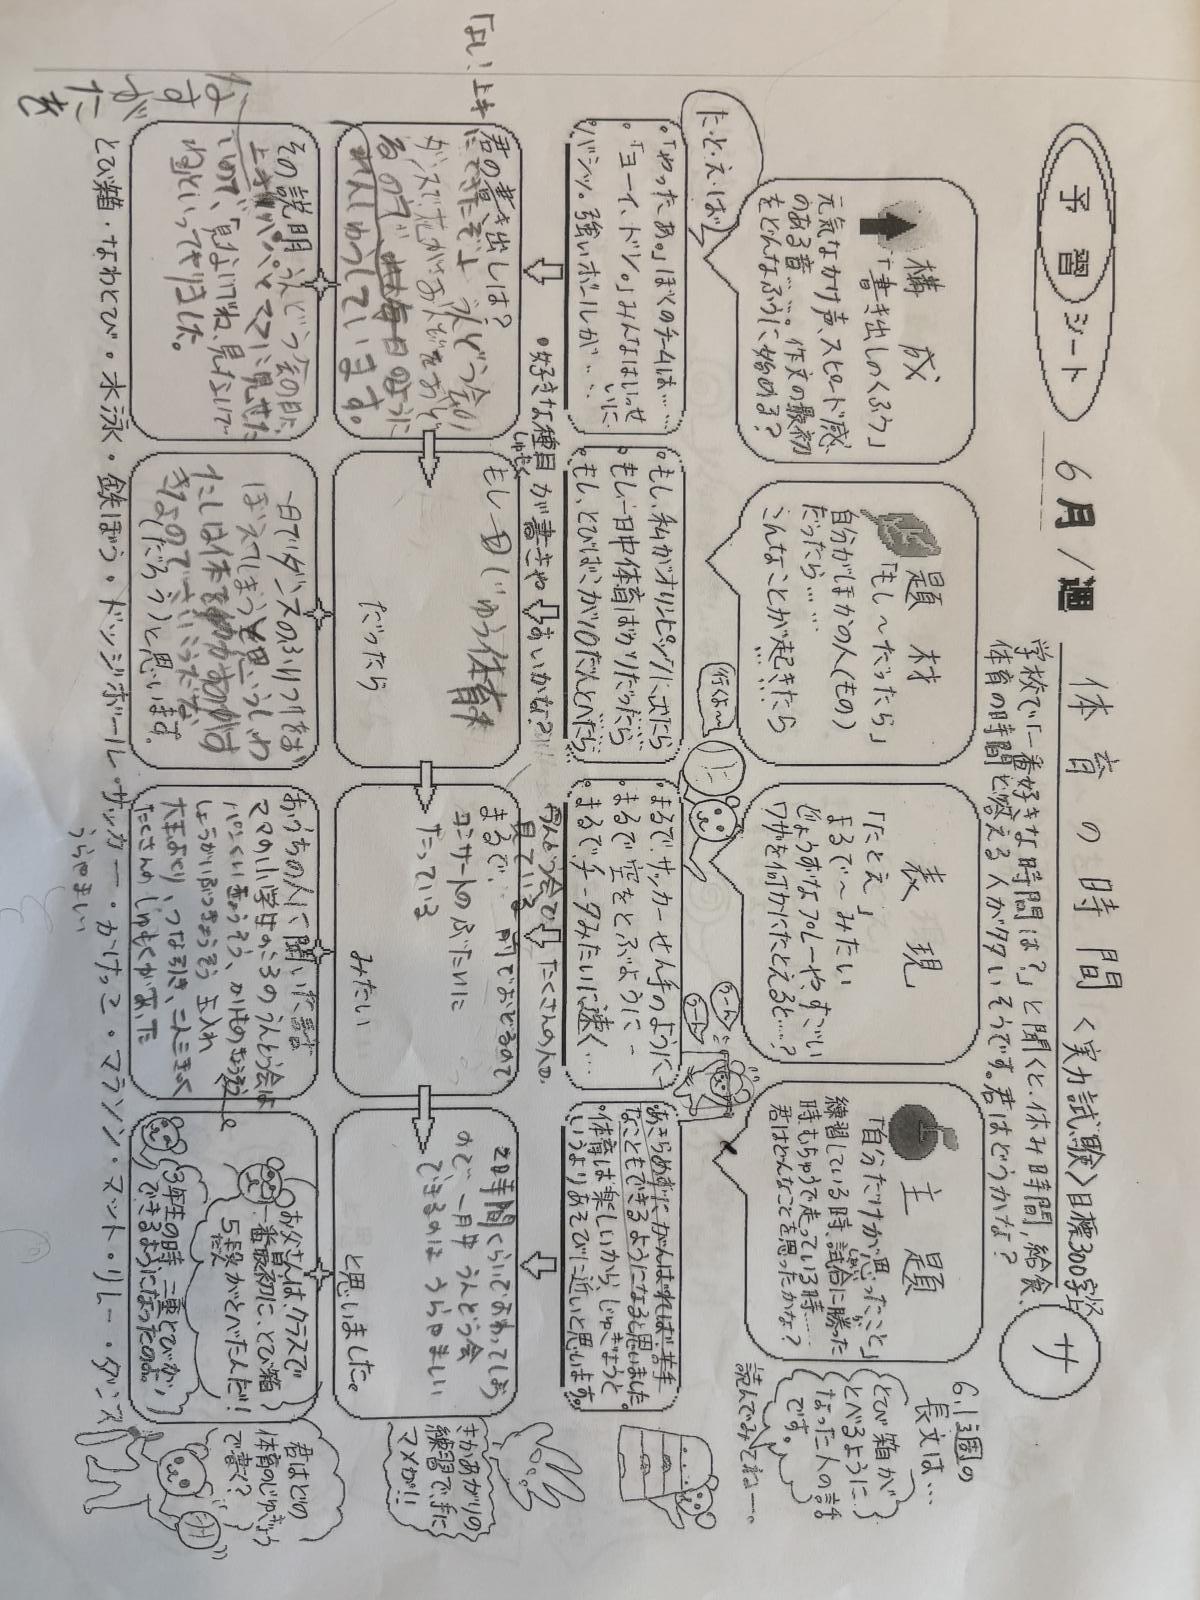 予習シート
6月1週
体育の時間
<実力試験>目標300字
サ
学校で「一番好きな時間は?」と聞くと、休み時間、給食、
体育の時間と答える人が多いそうです。君はどうかな?
6.1週の
長文は…
とび箱が
とべるように…
なった人の話
です。
読んでみてねー。
構成
「書き出しのくふう」
元気なかけ声、スピード感
のある音……。作文の最初
をどんなふうに始める?
題材
「もし~だったら」
自分がほかの人(もの)
だったら……
こんなことが起きたら
……
表現
「たとえ」
まるで~みたい
どのようすなプレーやすごい
ワザを何かにたとえると……?
主題
「自分だけが思ったこと」
練習している時、試合に勝った
時もちゅうで走っている時……
君はどんなことを思ったかな?
た・と・え・ば
・「やったあ。」ぼくのチームは……
・「ヨーイ、ドン。」みんなはいっせいに
・バシッ。強いボールが…
・もし、私がオリンピックに出たら
・もし、一日中体育ばかりだったら
・もし、とびばこが10だんとべたら
行くよ~
・まるで、サッカーせん手のように-
・まるで空をとぶように-
・まるでチータみたいに速く…
うーん
うーん
・あきらめずにがんばれば、苦手
なこともできるようになると思いました。
・体育は楽しいから、じゅぎょうと
いうよりあそびに近いと思います。
・好きな種目が書きやすいかな?
しゅもく
君の書き出しは?
「よし!上手
にできたぞ」
毎日のように
れんしゅうしています。
もし一日じゅう体育
だったら
うんどう会で、たくさんの人の
見ている
前でおどるので
まるで、
コンサートのぶたいに
たっている
みたい
2時間くらいでおわってしまう
ので、一日中うんどう会
できるのはうらやましい
と思いました。
さかあがりの
練習で、手に
マメが!!
その説明
うんどう会の日に
パパとママに見せた
一日でダンスのふりつけをお
ぼえてしまうと思う。わ
たしは体を
(だろう)と思います。
おうちの人に聞いた話
ママの小学生のころのうんどう会は
パンくいきょうそう、かりものきょうそう
しょうがいぶつきょうそう 玉入れ
大玉おくり つな引き、二人三きゃく
たくさんのしゅもくがあった
うらやましい
お父さんは、クラスで
一番最初に、とび箱
5段がとべたんだ!
3年生の時、二重とびが
できるようになったのよ。
君はどの
体育のじゅぎょう
で書く?
とび箱・なわとび・水泳・鉄ぼう・ドッジボール・サッカー・かけっこ・マラソン・マット・リレー・ダンス